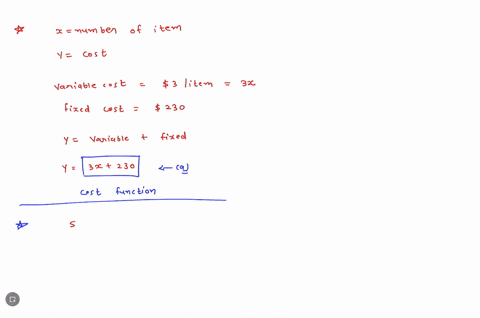 x = number of item
Y = cost
Variable cost = $3 / item = 3x
fixed cost = $230
Y = Variable + fixed
Y = 3x + 230 ← (a)
cost function
S